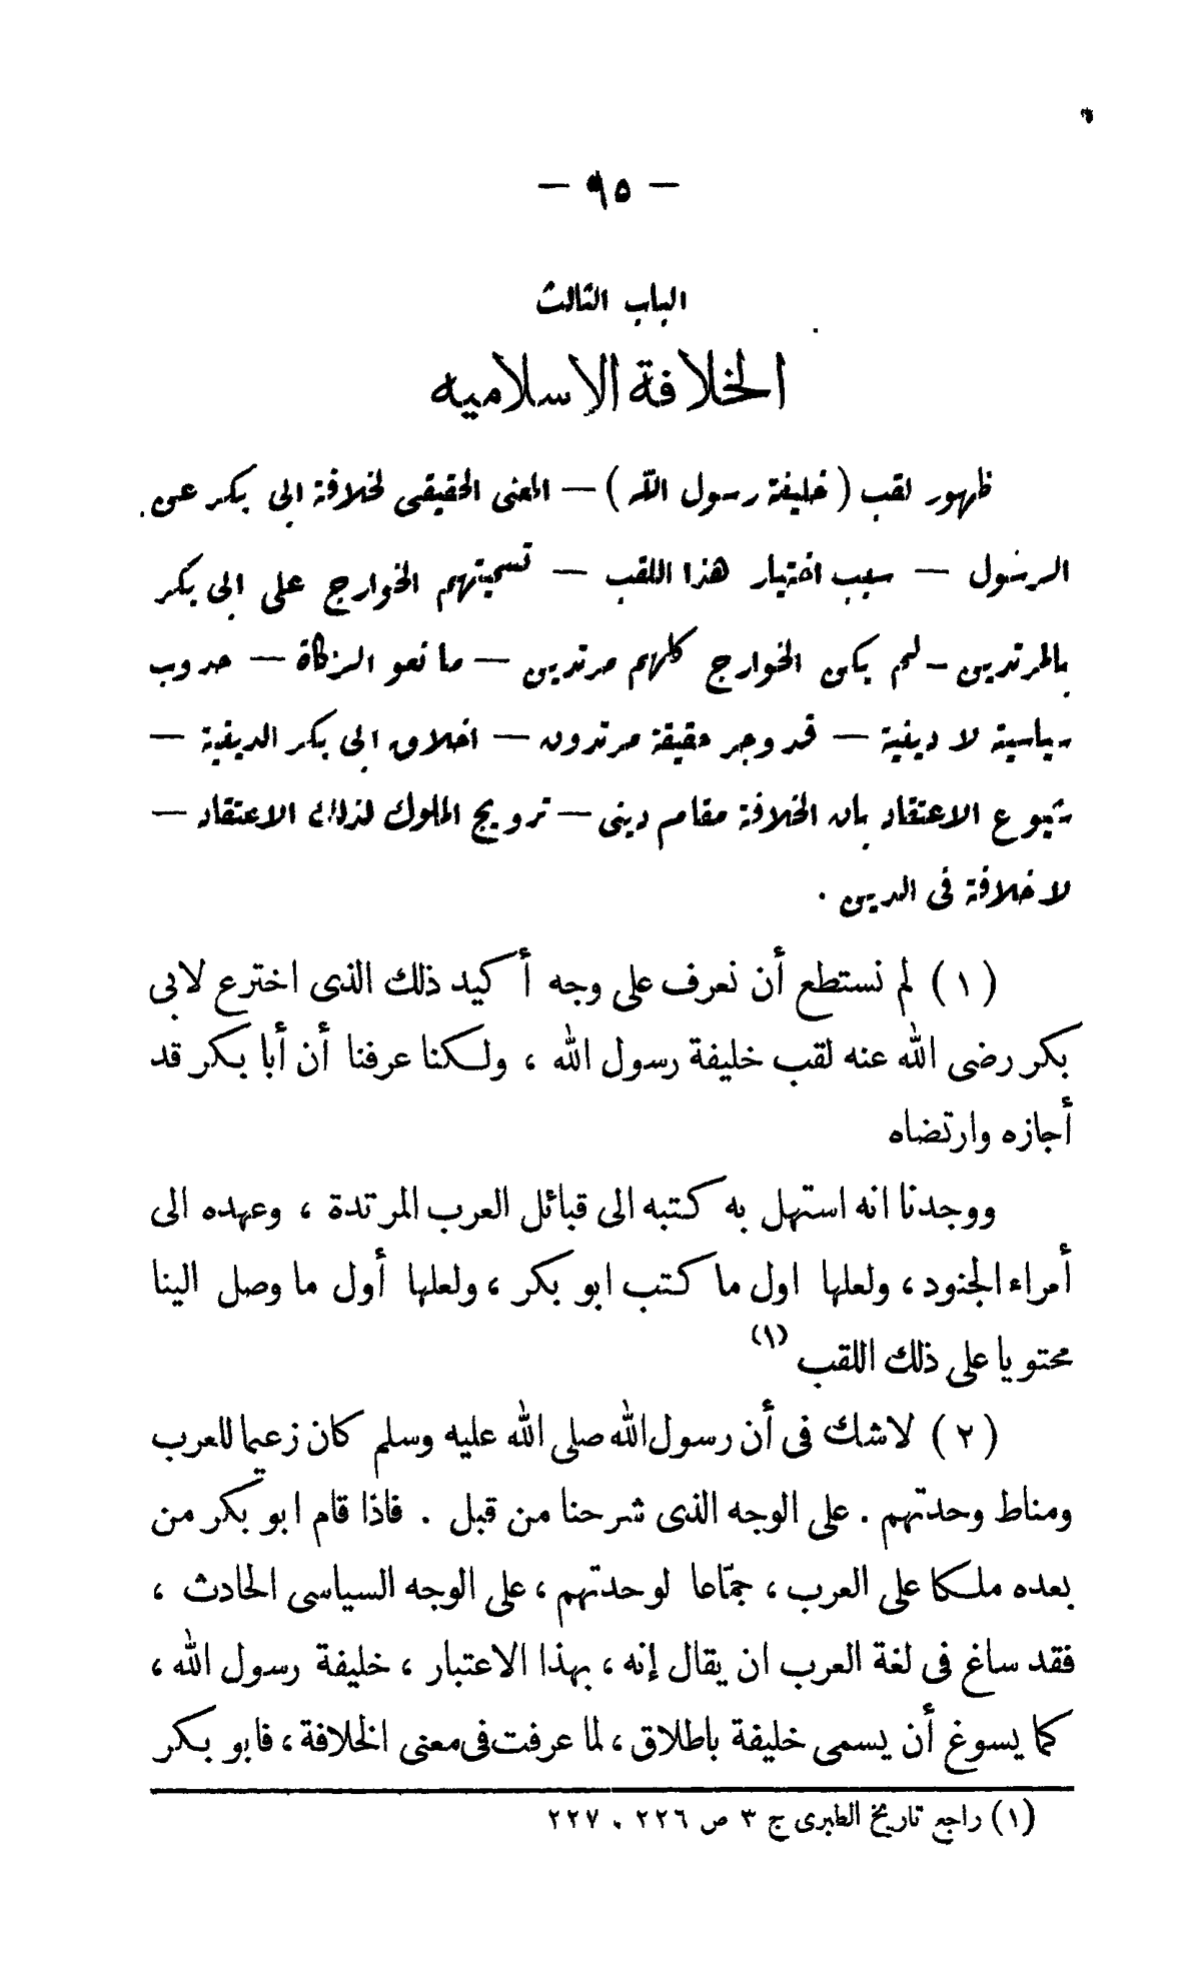 — ٩٥ —
الباب الثالث
الخلافة الاسلاميه
ظهور لقب (خليفة رسول الله) — المعنى الحقيقى لخلافة ابى بكر عن
الرسول — سبب اختيار هذا اللقب — تسميتهم الخوارج على ابى بكر
بالمرتدين — لم يكن الخوارج كلهم مرتدين — مانعو الزكاة — حروب
سياسية لا دينية — قد وجد حقيقة مرتدون — اخلاق ابى بكر الدينية —
شيوع الاعتقاد بان الخلافة مقام دينى — ترويج الملوك لذلك الاعتقاد —
لا خلافة فى الدين .
(١) لم نستطع أن نعرف على وجه أكيد ذلك الذى اخترع لابى
بكر رضى الله عنه لقب خليفة رسول الله ، ولكنا عرفنا أن أبا بكر قد
أجازه وارتضاه
ووجدنا انه استهل به كتبه الى قبائل العرب المرتدة ، وعهده الى
أمراء الجنود ، ولعلها اول ما كتب ابو بكر ، ولعلها أول ما وصل الينا
محتويا على ذلك اللقب (١)
(٢) لاشك فى أن رسول الله صلى الله عليه وسلم كان زعيما للعرب
ومناط وحدتهم . على الوجه الذى شرحنا من قبل . فاذا قام ابو بكر من
بعده ملكا على العرب ، جمّاعا لوحدتهم ، على الوجه السياسى الحادث ،
فقد ساغ فى لغة العرب ان يقال إنه ، بهذا الاعتبار ، خليفة رسول الله ،
كما يسوغ أن يسمى خليفة باطلاق ، لما عرفت فى معنى الخلافة ، فابو بكر
(١) راجع تاريخ الطبرى ج ٣ ص ٢٢٦ ، ٢٢٧